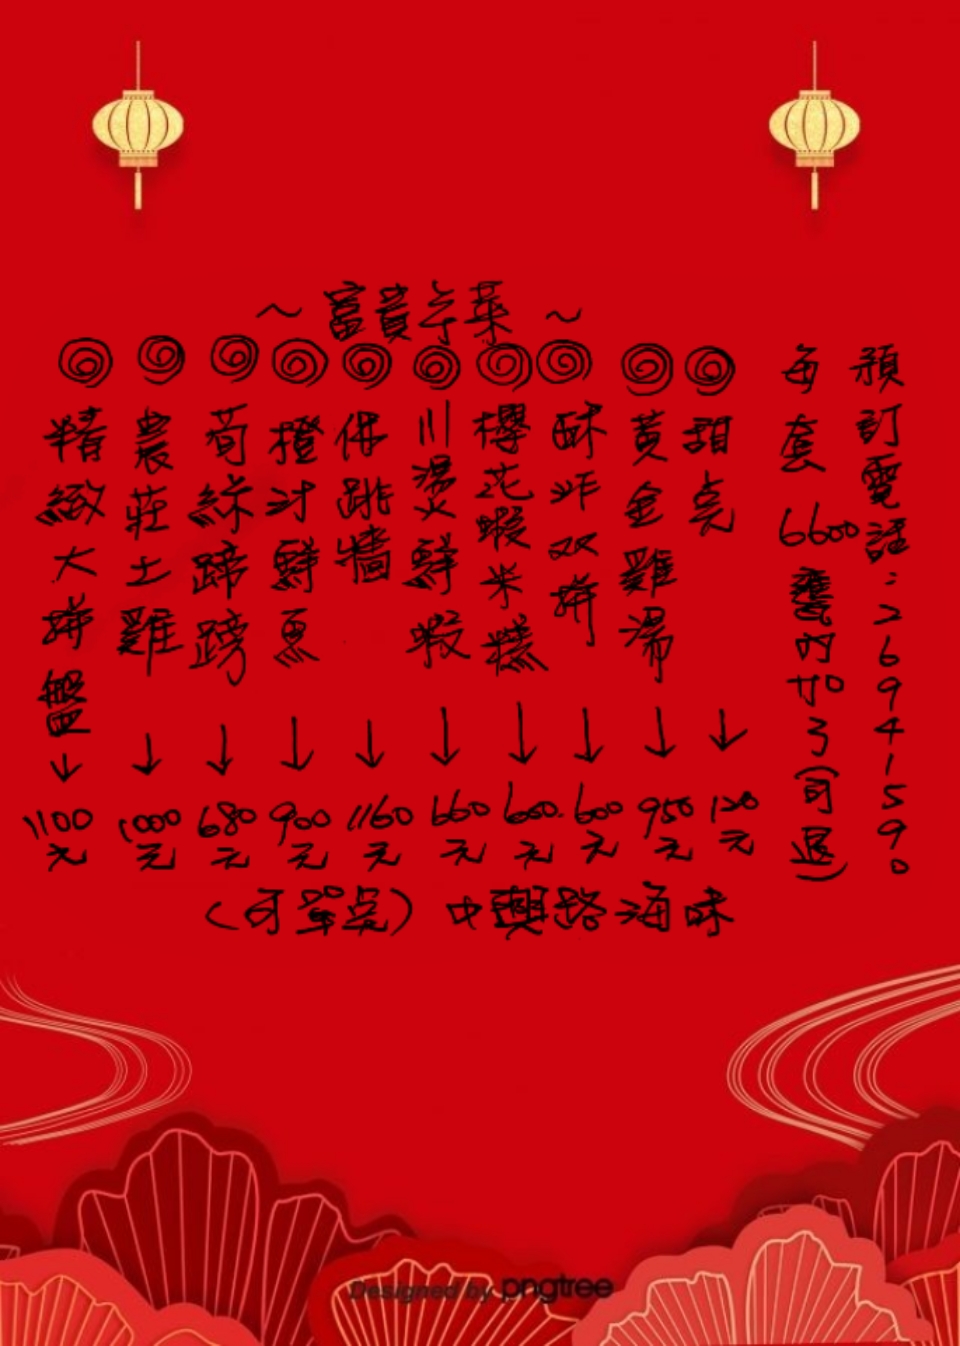 ~富貴年菜~
預訂電話:26941590
每套6600甕內加3(可退)
甜点
黃金雞湯
酥炸双拼
櫻花蝦米糕
川燙鮮蝦
佛跳牆
橙汁鮮魚
筍絲蹄膀
農莊土雞
精緻大拼盤
↓ ↓ ↓ ↓ ↓ ↓ ↓ ↓ ↓ ↓
1100元 1000元 680元 900元 1160元 660元 600元 600元 950元 120元
(可單點)中興路海味
Designed by pngtree